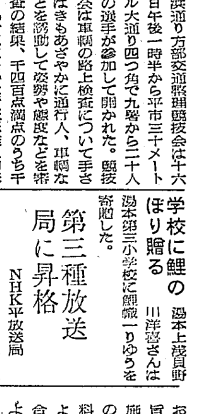 浜通り方部交通整理競技会は十六
日午後一時半から平市三十メート
ル大通り四つ角で九署から二十人
の選手が参加して開かれた。競技
会は車輌の路上検査について手さ
ばきもあざやかに通行人、車輌な
どを誘動して姿勢や態度などを審
査の結果、千四百点満点のうち千
学校に鯉の
ぼり贈る
湯本上浅貝野
川洋喜さんは
湯本第三小学校に鯉幟一りゆうを
寄贈した。
第三種放送
局に昇格
NHK平放送局